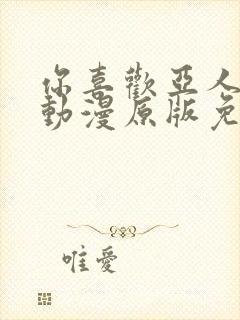 你喜歡亞人
動漫原版免
唯愛